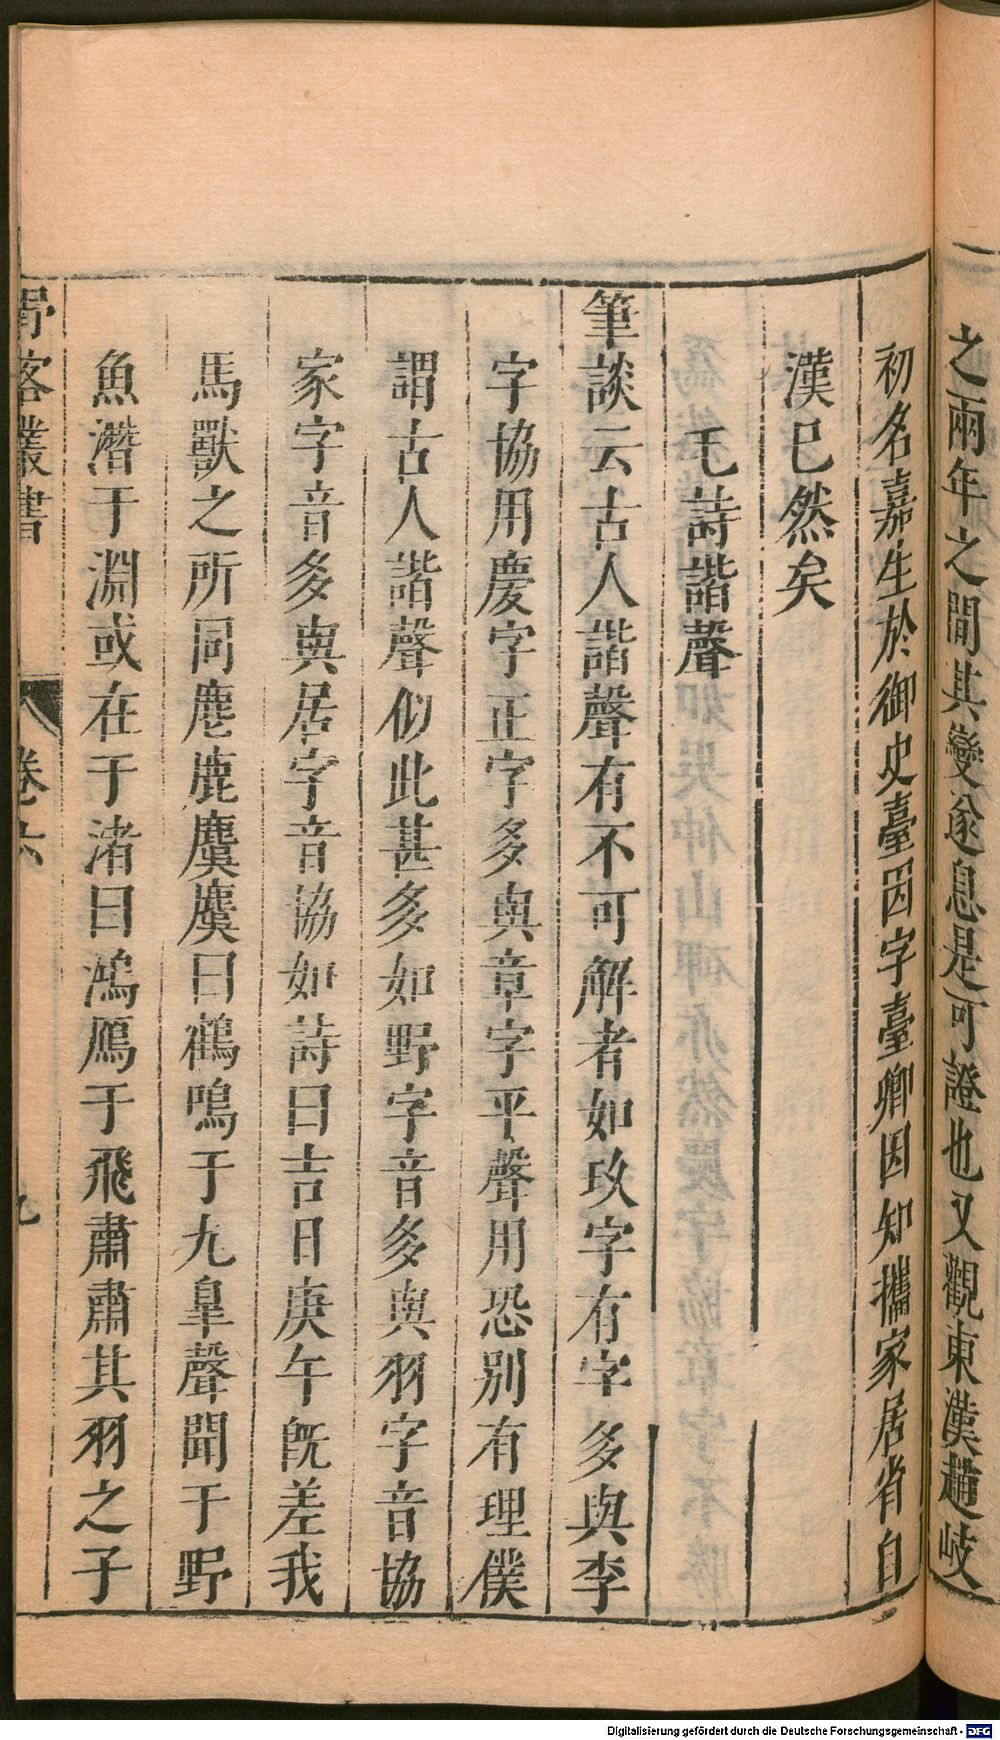 之兩年之間其變遂息是可證也又觀東漢趙岐
初名嘉生於御史臺因字臺卿因知攜家居省自
漢已然矣
毛詩諧聲
筆談云古人諧聲有不可解者如玖字有字多與李
字協用慶字正字多與章字平聲用恐别有理僕
謂古人諧聲似此甚多如野字音多與羽字音協
家字音多與居字音協如詩曰吉日庚午旣差我
馬獸之所同麀鹿麌麌曰鶴鳴于九皐聲聞于野
魚潛于淵或在于渚曰鴻鴈于飛肅肅其羽之子
客叢書
卷六
九
Digitalisierung gefördert durch die Deutsche Forschungsgemeinschaft - DFG